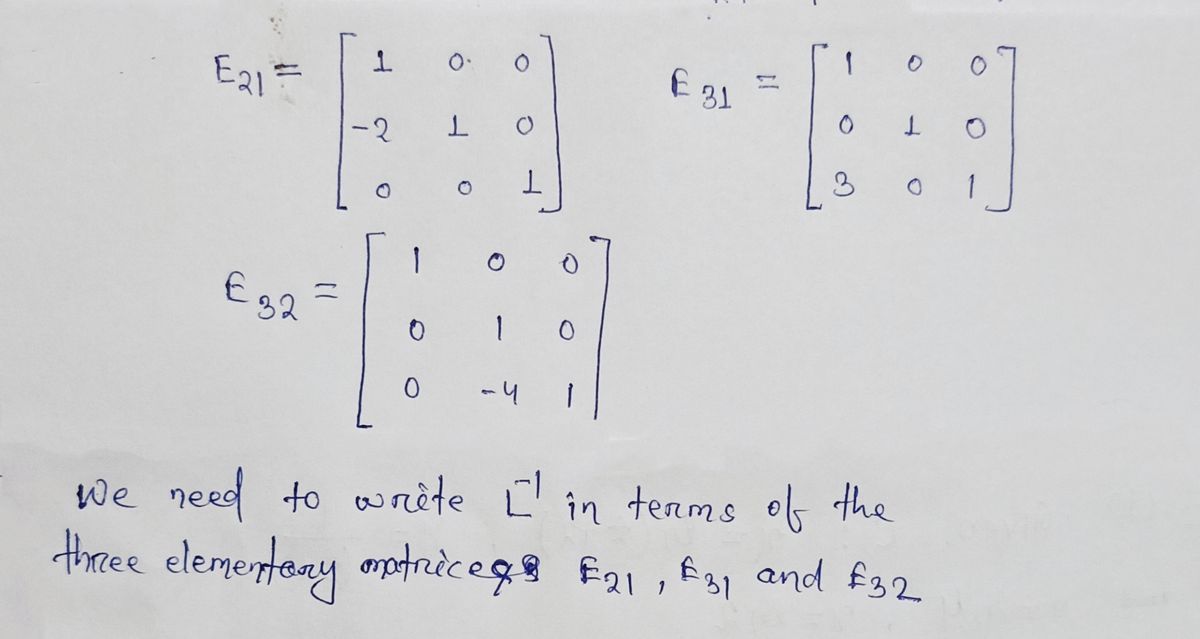 E21 = [ 1 0 0    E31 = [ 1 0 0
-2 1 0    0 1 0
0 0 1 ]    3 0 1 ]
E32 = [ 1 0 0
0 1 0
0 -4 1 ]
We need to write L^-1 in terms of the
three elementary matrices E21, E31 and E32